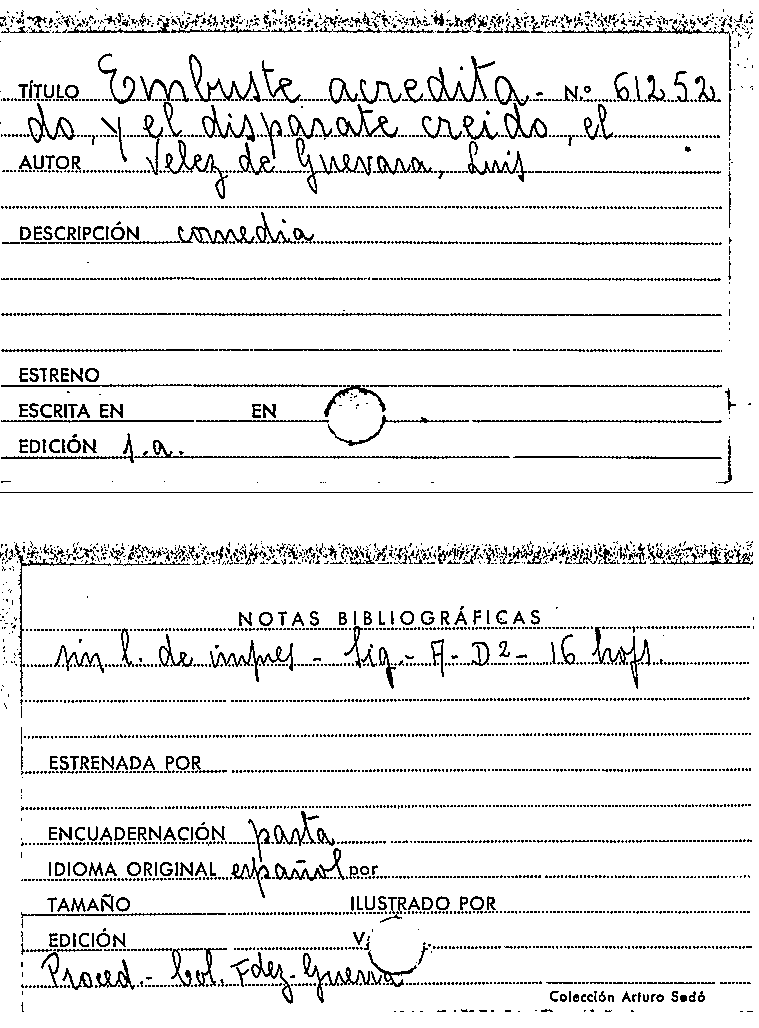 TÍTULO Embuste acredita- N.º 61252
do, y el disparate creido, el
AUTOR Velez de Guevara, Luis
DESCRIPCIÓN comedia
ESTRENO
ESCRITA EN EN
EDICIÓN s.a.
NOTAS BIBLIOGRÁFICAS
sin l. de impres - Sig.- A- D2- 16 hojs.
ESTRENADA POR
ENCUADERNACIÓN pasta
IDIOMA ORIGINAL español por
TAMAÑO ILUSTRADO POR
EDICIÓN V.
Proced.- Col. Fdez-Guerra
Colección Arturo Sedó